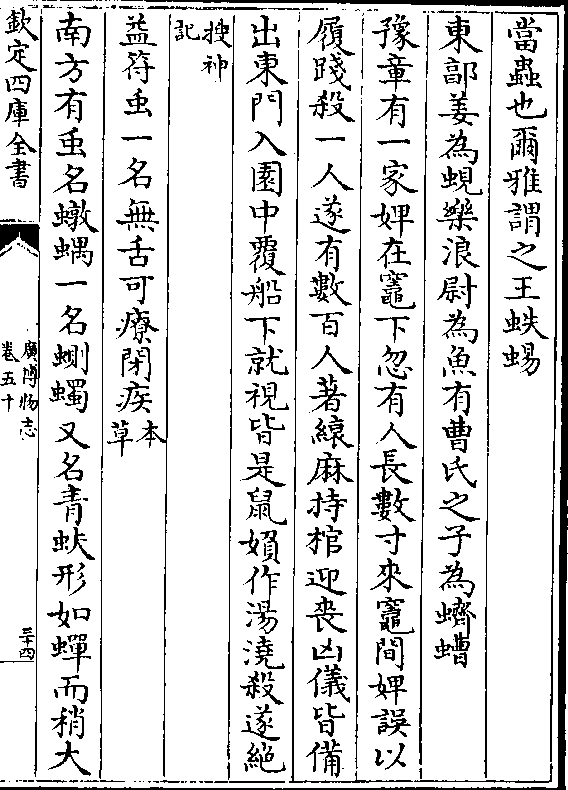 當蟲也爾雅謂之王蛈蜴
東郚姜為蜆樂浪尉為魚有曹氏之子為蠐螬
豫章有一家婢在竈下忽有人長數寸來竈間婢誤以
履踐殺一人遂有數百人著縗麻持棺迎喪凶儀皆備
出東門入園中覆船下就視皆是鼠婦作湯澆殺遂絶
搜神
記
益符䖝一名無舌可療閉疾本
草
南方有䖝名𧑒蝺一名蝍蠋又名青蚨形如蟬而稍大
欽定四庫全書
廣博物志
卷五十
三十四